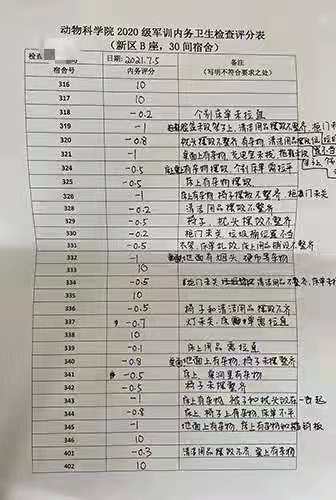 动物科学院2020级军训内务卫生检查评分表
(新区B座，30间宿舍)
检查 日期:2021.7.5 备注
宿舍号 内务评分 (写明不符合要求之处)
316 10
317 10
318 -0.2 个别床单未拉直
319 -1 清洁用品摆放不整齐，柜门未
320 -0.8 枕头摆放不整齐 有杂物 清洁用品
321 -1 桌面上有杂物，充电宝未拔
324 -0.5 床上有杂物摆放，个别床单需拉平
325 -0.5 床上有杂物摆放
326 -1 床上有杂物 椅子摆放不整齐，柜门未关
328 -0.2 清洁用品摆放不整齐
329 -0.5 椅子，枕头摆放不整齐
330 -0.2 柜门未关 垃圾桶位置不当
331 -0.5 衣架、床单乱放、床上用品摆设不整齐
332 -1 地面有烟头、硬币等杂物
333 10
334 -0.5 柜门未关 清洁用品不整齐，床单未
335 10
336 -0.5 椅子和清洁用品摆放不齐
337 -0.7 灯未关、床单需拉直
338 10
339 -0.1 床上用品需拉直
340 -0.8 地面上有杂物，椅子未摆整齐
341 -0.5 床上、桌洞里有杂物
342 -0.5 椅子未摆整齐
343 -1 床上有杂物、被子和枕头放在一起
344 -0.8 床上、椅子上有杂物，床单不平
345 -1 地面上有杂物，床上有杂物和
346 10
401 -0.3 清洁用品摆放不齐 桌上有杂物
402 10